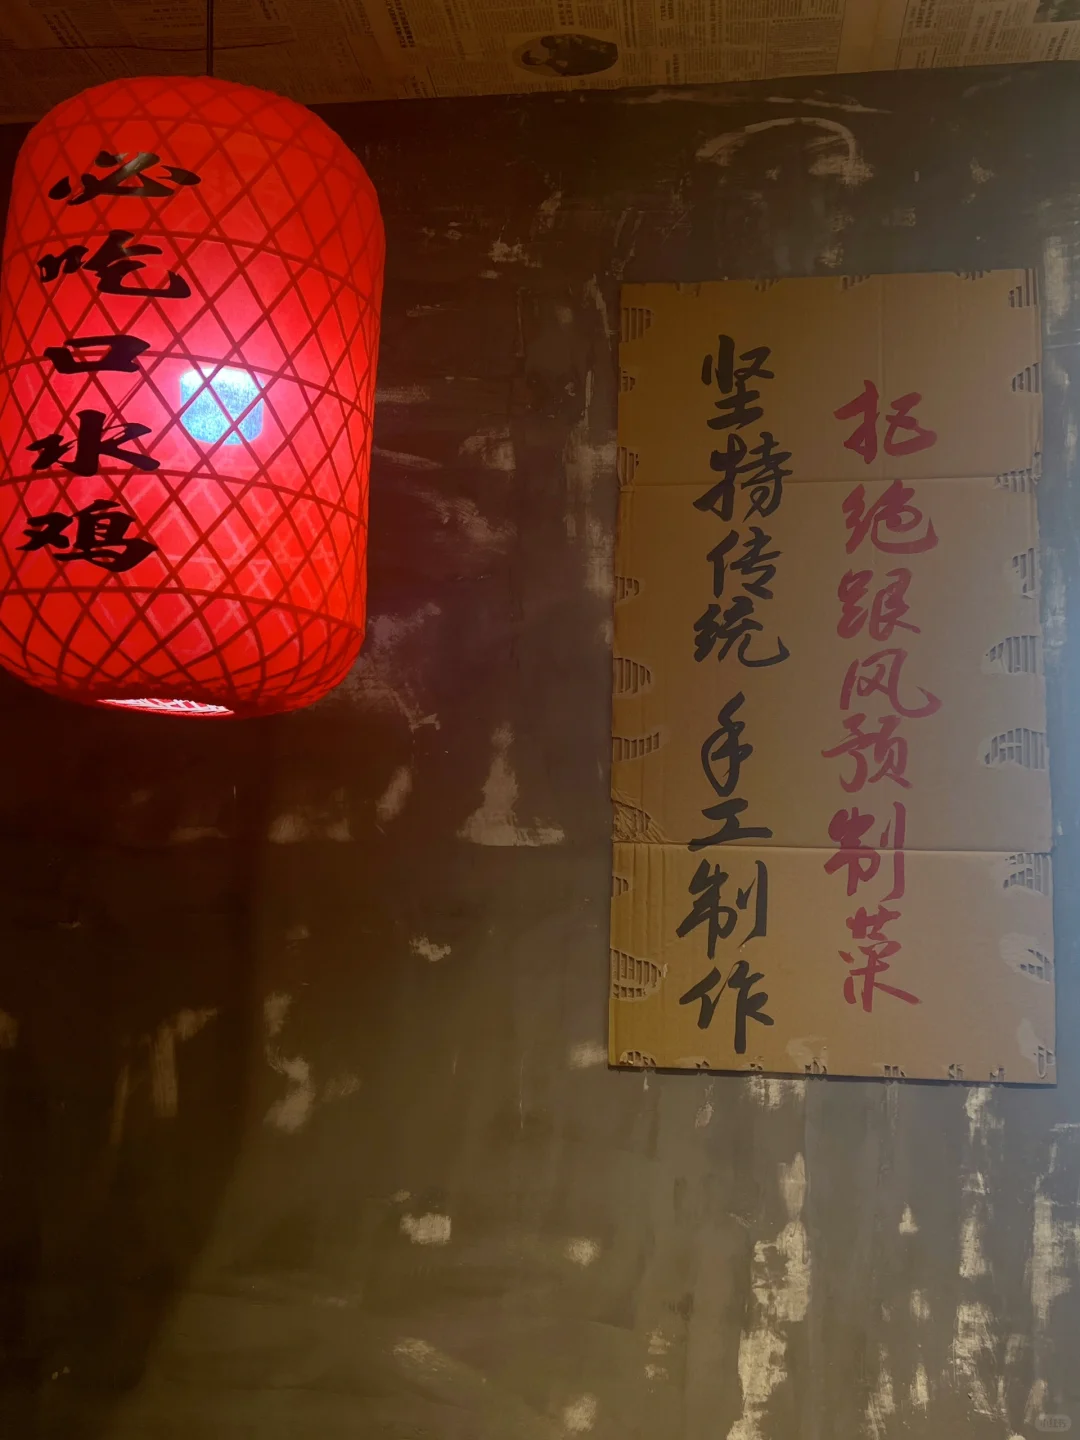 必吃口水鸡
拒绝跟风预制菜
坚持传统 手工制作